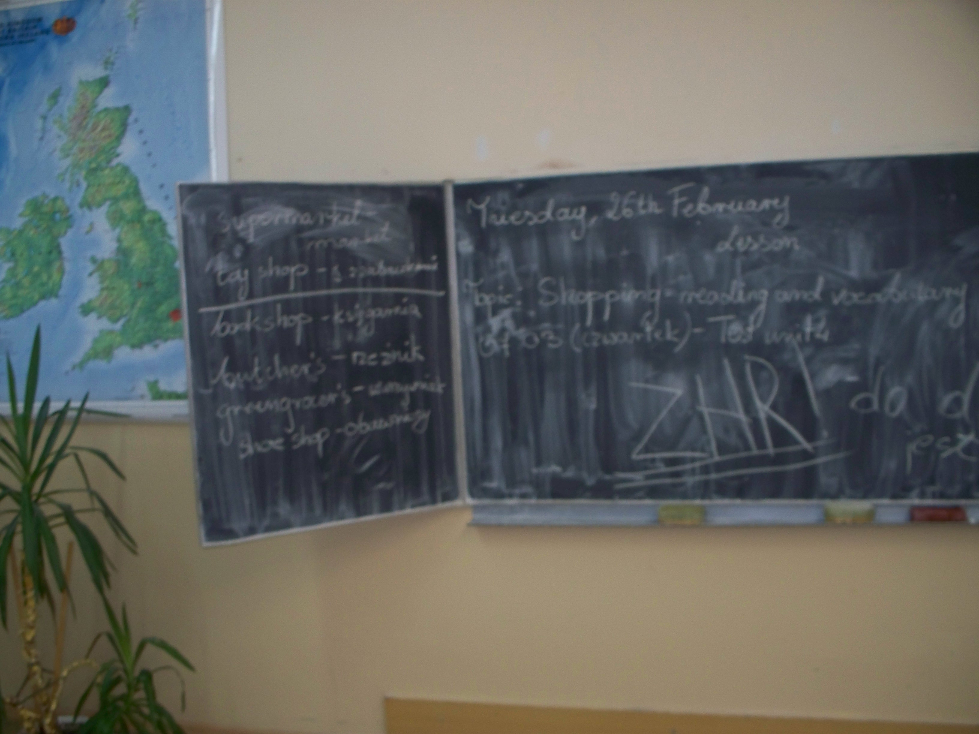 supermarket -
market
toy shop - s. z zabawkami
bookshop - księgarnia
butcher's - rzeźnik
greengrocer's - warzywniak
shoe shop - obuwniczy
Tuesday, 26th February
Lesson
Topic: Shopping - reading and vocabulary
03 (czwartek) - Test unit 4
ZHR! da d
jest